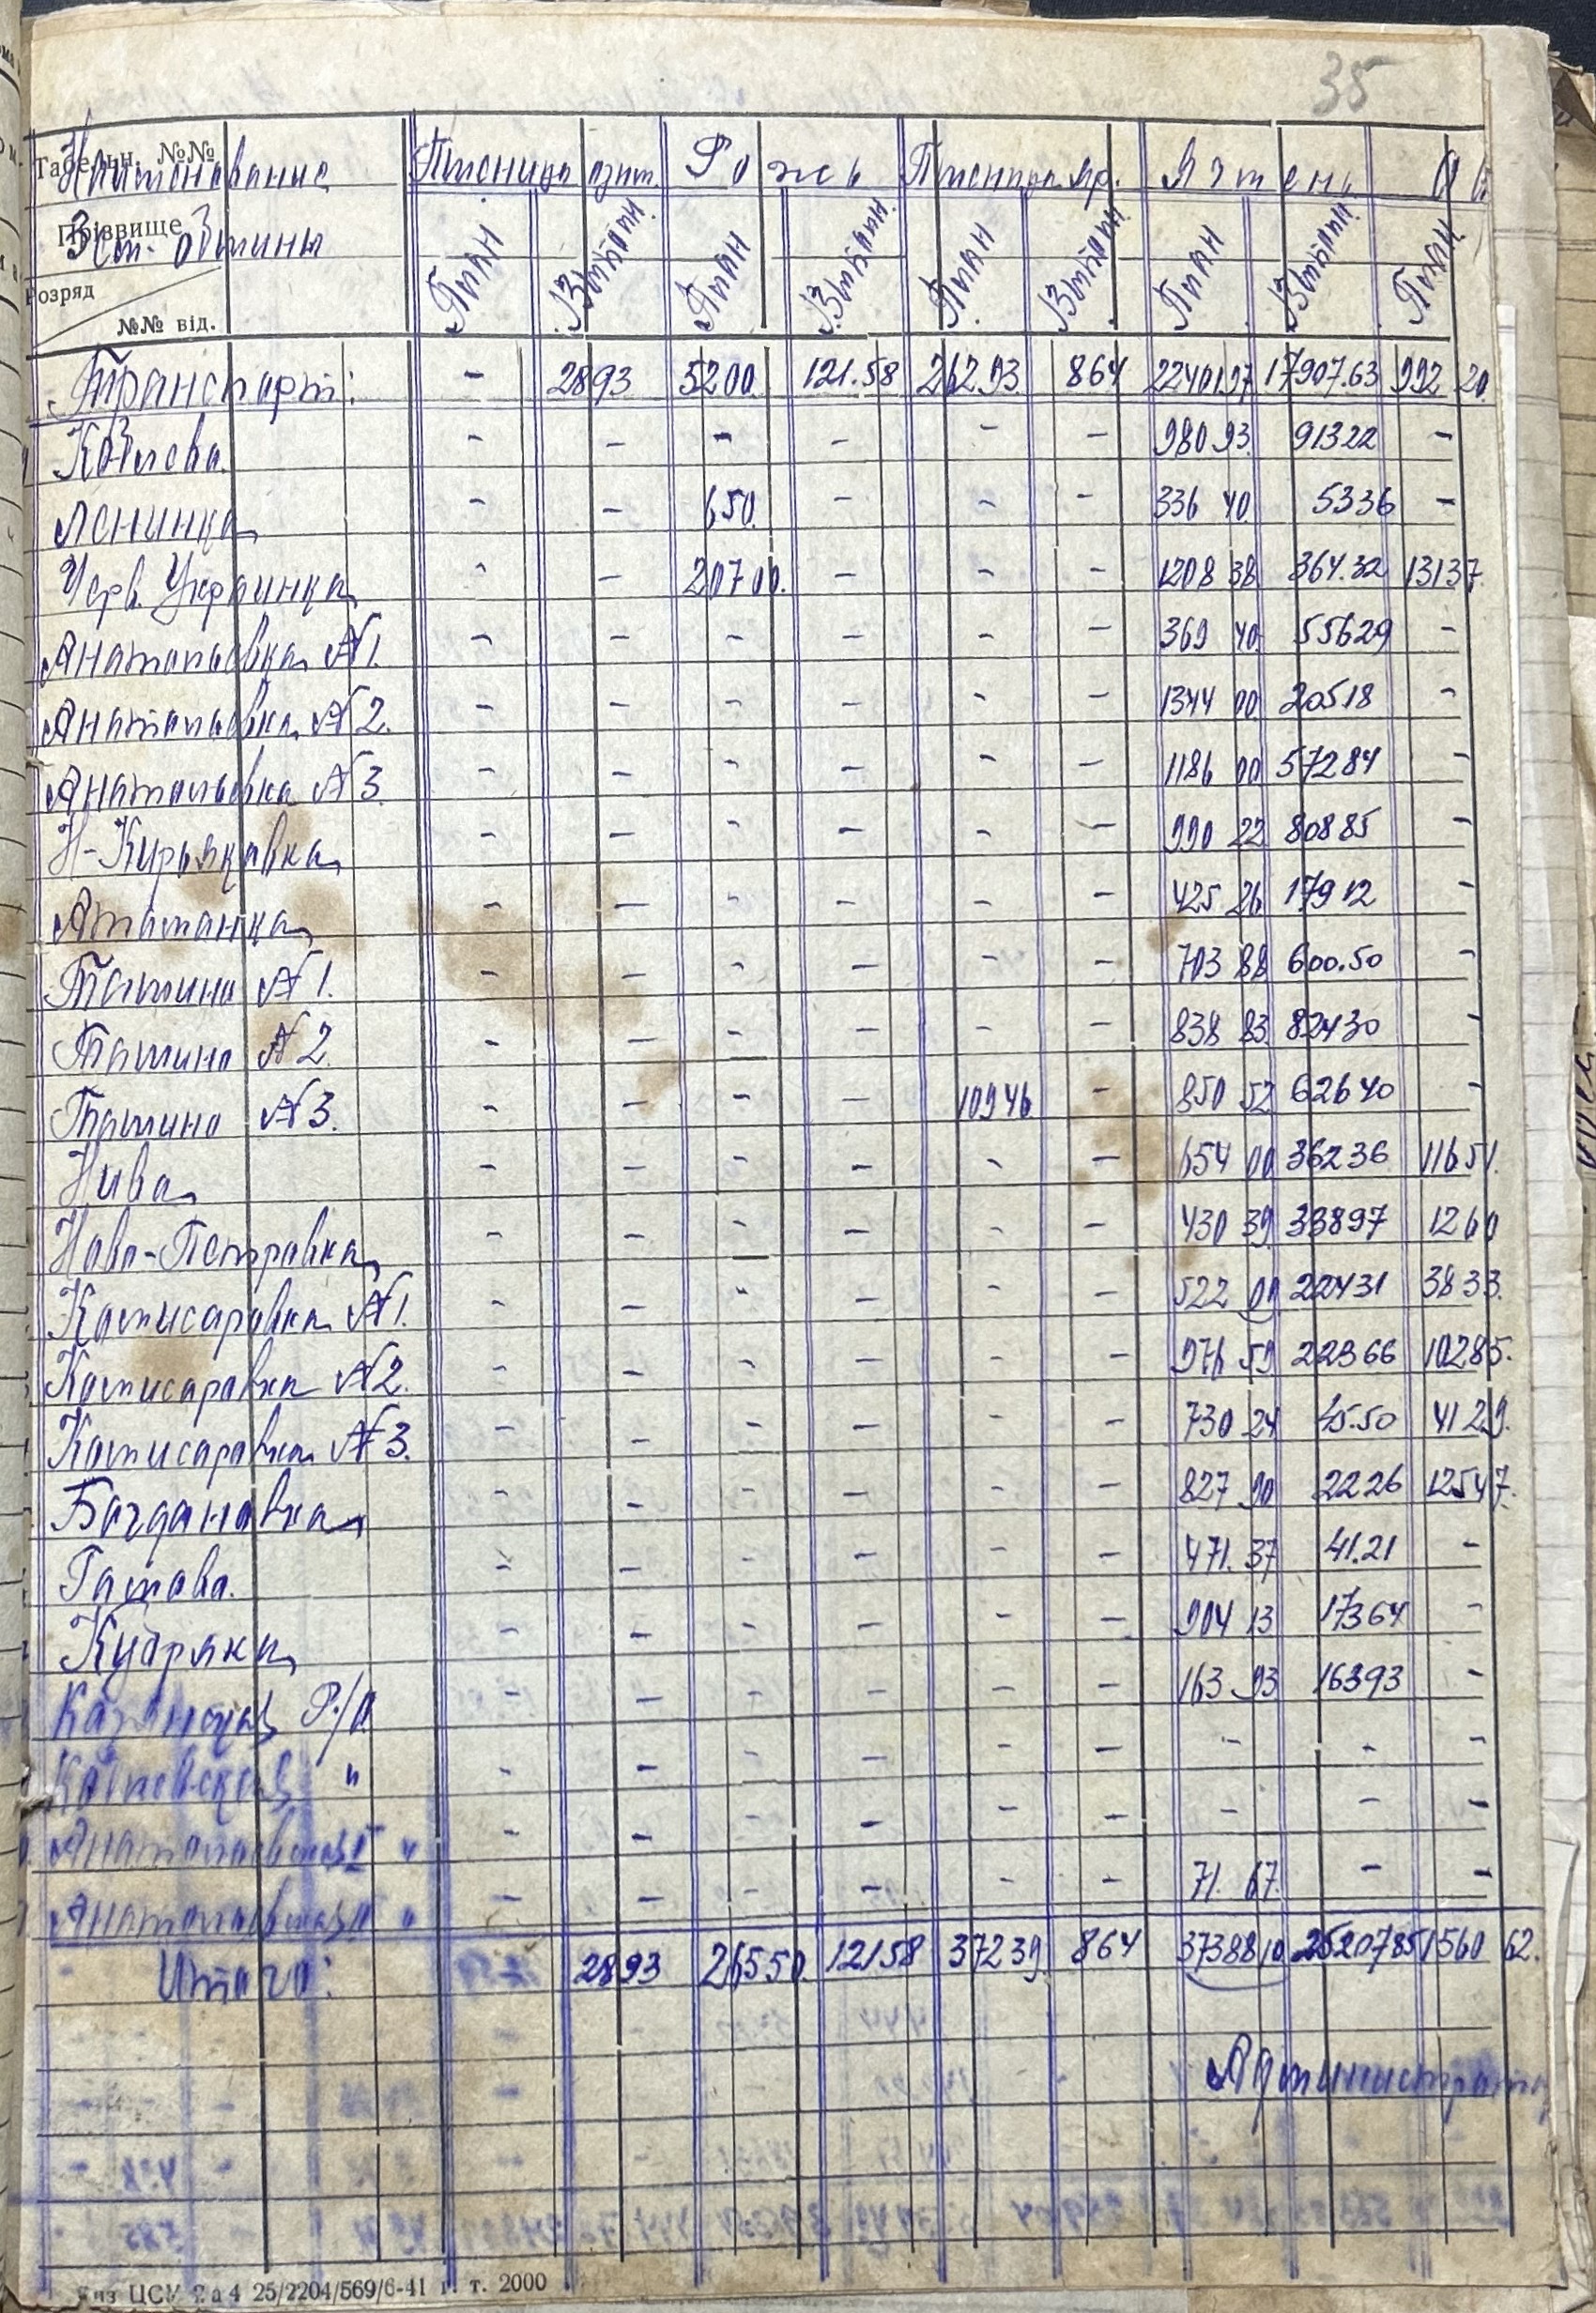 35
Табельн. №№
Наименование Пшеница озим. Рожь Пшеница яр. Ячмень
Прізвище
Зем. общины
План Выполн. План Выполн. План Выполн. План Выполн. План
Розряд
№№ від.
Транспорт: - 28 93 52 00 121.58 262.93 864 22401 97 17907.63 992 20
- - - - - - 980 93 913 22 -
Ленинка - - 650 - - - 336 40 53 36 -
Черв. Украинка - - 207 00 - - - 1208 38 364.32 131 37
Анатольевка №1. - - - - - - 369 40 556 29 -
Анатольевка №2. - - - - - - 1344 00 205 18 -
Анатольевка №3. - - - - - - 1186 00 572 84 -
Н-Кирьяковка - - - - - - 990 22 808 85 -
Атаманка - - - - - - 425 26 179 12 -
Ташино №1. - - - - - - 703 88 600.50 -
Ташино №2 - - - - - - 838 83 824 30 -
Ташино №3. - - - - 109 46 - 850 52 626 40 -
Нива - - - - - - 654 00 362 36 116 51.
Ново-Петровка - - - - - - 430 39 338 97 12 60
Комисаровка №1. - - - - - - 522 00 224 31 38 33.
Комисаровка №2. - - - - - - 976 59 223 66 102 85.
Комисаровка №3. - - - - - - 730 24 45.50 41 29.
Богдановка - - - - - - 827 90 22 26 125 47.
- - - - - - 471. 37 41.21 -
Кудряки - - - - - - 904 13 173 64 -
Р/О - - - - - - 163 93 163 93 -
" - - - - - - - - -
" - - - - - - - - -
" - - - - - - 71. 67. - -
Итого: 28 93 265 50. 121 58 372 39 864 37388 10 25207 85 1560 62.
25/2204/569/6-41 г. т. 2000